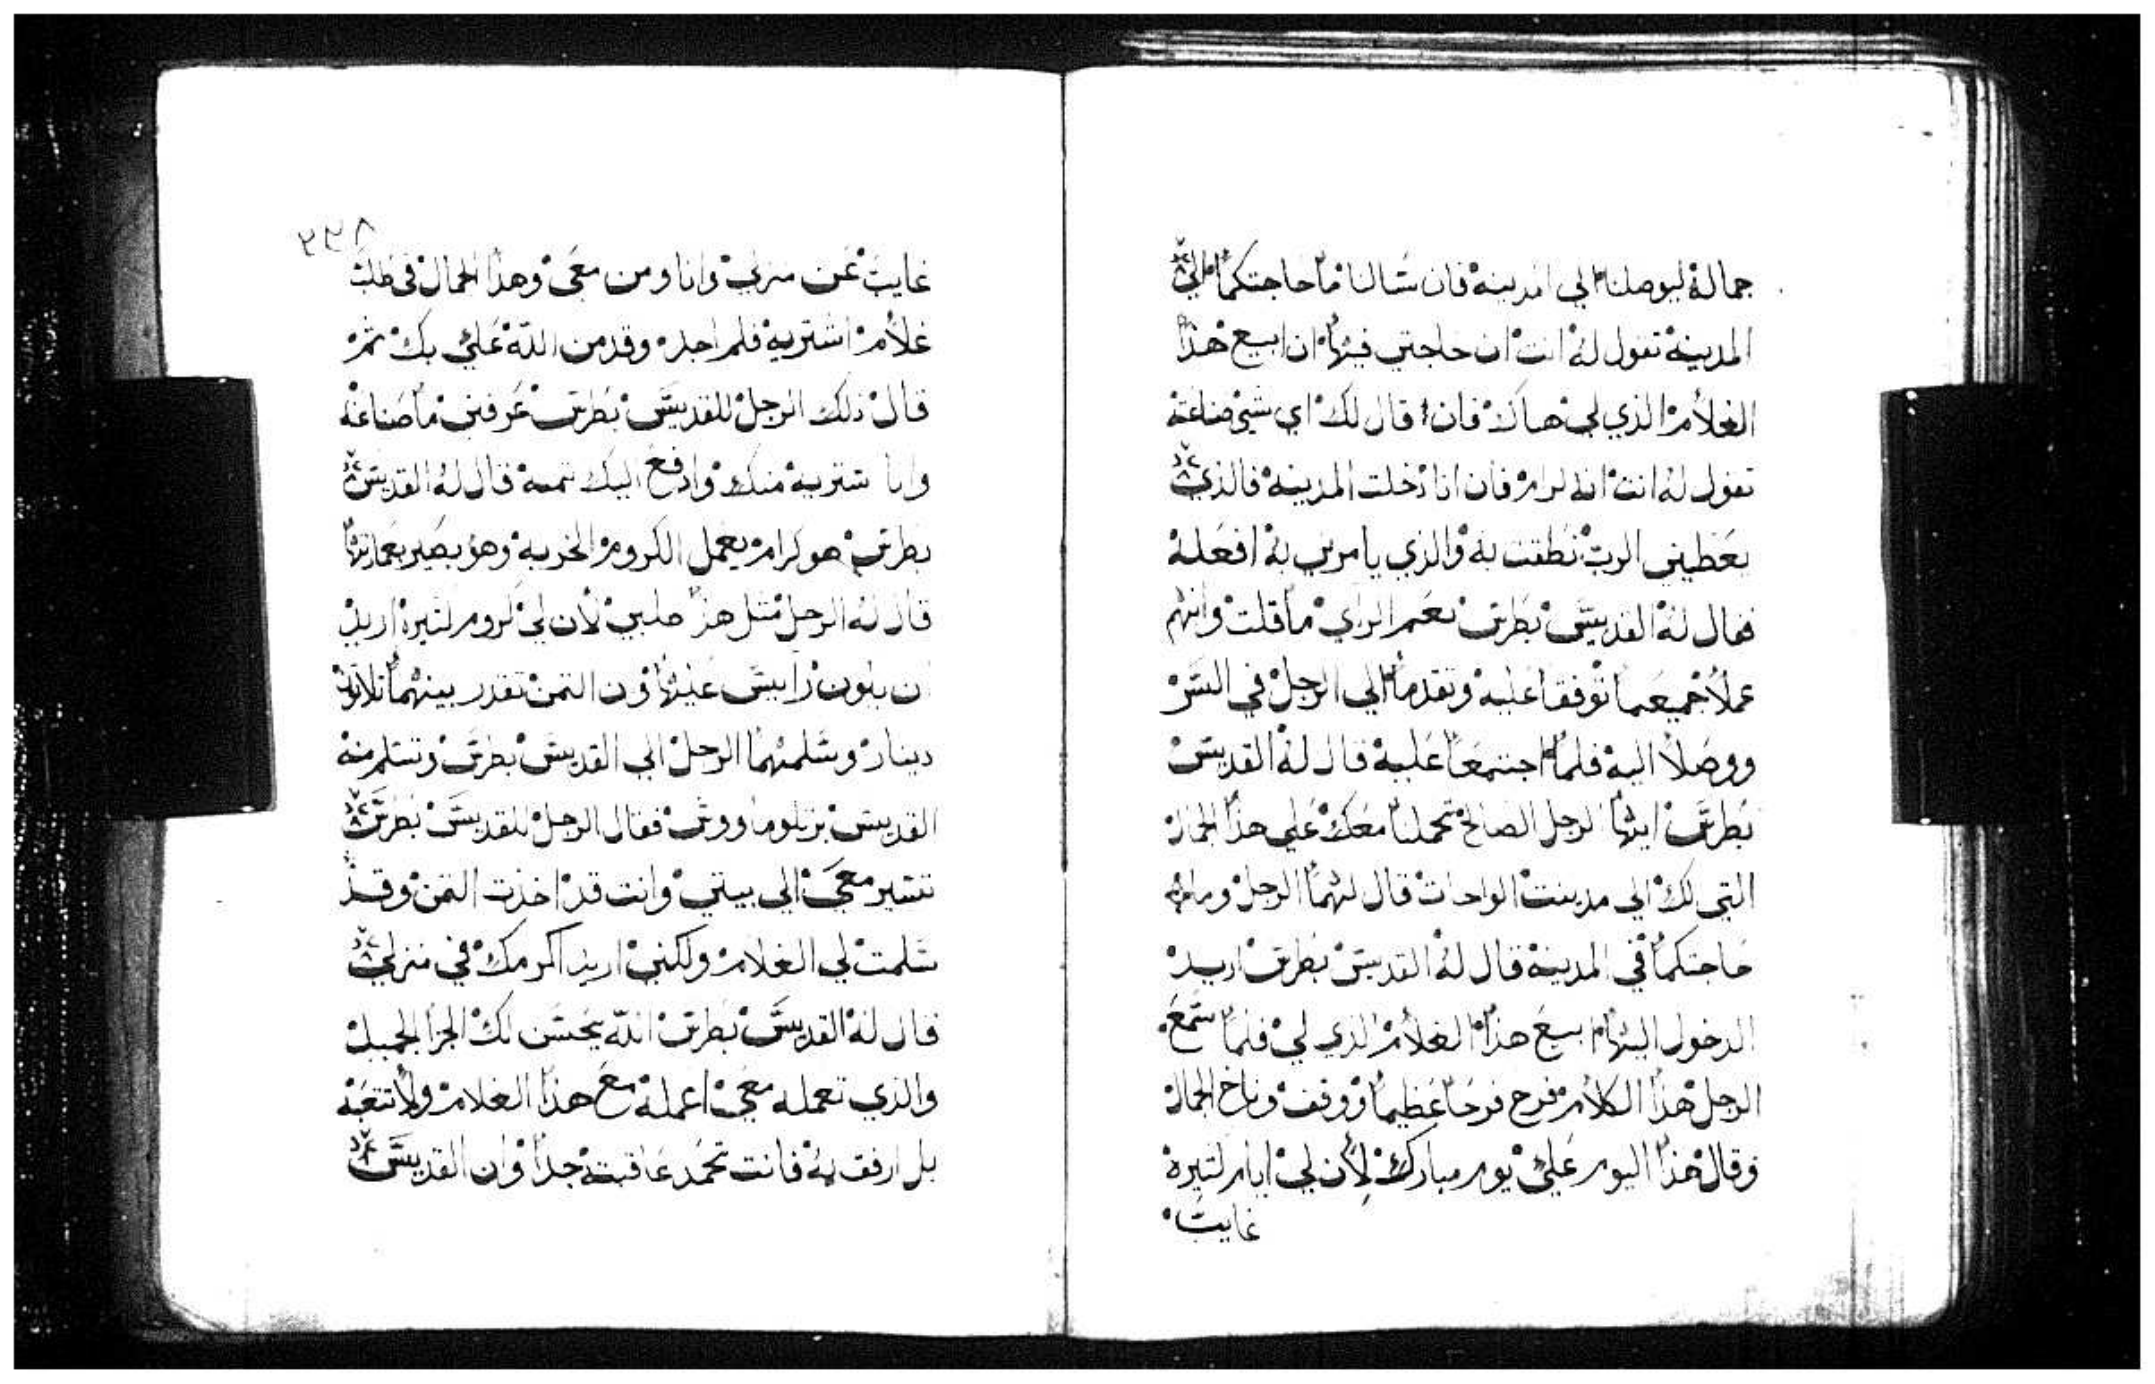 جماله ليوصلنا الي المدينه فان سالنا ما حاجتكما الي
المدينه تقول له انت ان حاجتي فيها ان ابيع هذا
الغلام الذي لي هاك فان قال لك اي شي صناعته
تقول له انت انه كرام فان انا دخلت المدينه فالذي
يعطيني الرب نطقت به والذي يامرني به افعله
فقال له القديس بطرس نعم الراي ما قلت وانهم
عملا جميعما توفقا عليه وتقدما الي الرجل في السر
ووصلا اليه فلما اجتمعا عليه قال له القديس
بطرس ايها الرجل الصالح تحملنا معك علي هذا الجمال
التي لك الي مدينت الواحات قال لهما الرجل وما هي
حاجتكما في المدينه قال له القديس بطرس اريد
الدخول اليها ابيع هذا الغلام الذي لي فلما سمع
الرجل هذا الكلام فرح فرحا عظيما ووقف وناخ الجمال
وقال هذا اليوم علي يوم مبارك لان لي ايام كتيره
غايب
٢٢٨
غايب عن منزلي وانا ومن معي وهذا الجمال في طلب
غلام اشتريه فلم اجد وقد من الله علي بك ثم
قال ذلك الرجل للقديس بطرس عرفني ما صناعته
وانا اشتريه منك وادفع اليك تمنه قال له القديس
بطرس هو كرام يعمل الكروم الخربه وهو بصير بعمارتها
قال له الرجل متل هذا طلبي لان لي كروم كتيره اريد
ان يكون رايس عليها وان التمن تقدر بينهما تلاتون
دينار وسلمهما الرجل الي القديس بطرس وتسلم منه
القديس برتلوماووس فقال الرجل للقديس بطرس
تسير معي الي بيتي وانت قد اخذت التمن وقد
سلمت لي الغلام ولكني اريد اكرمك في منزلي
قال له القديس بطرس الله يحسن لك الجزا الجميل
والذي تعمله معي اعمله مع هذا الغلام ولا تتعبه
بل ارفق به فانت تحمد عاقبته جدا وان القديس